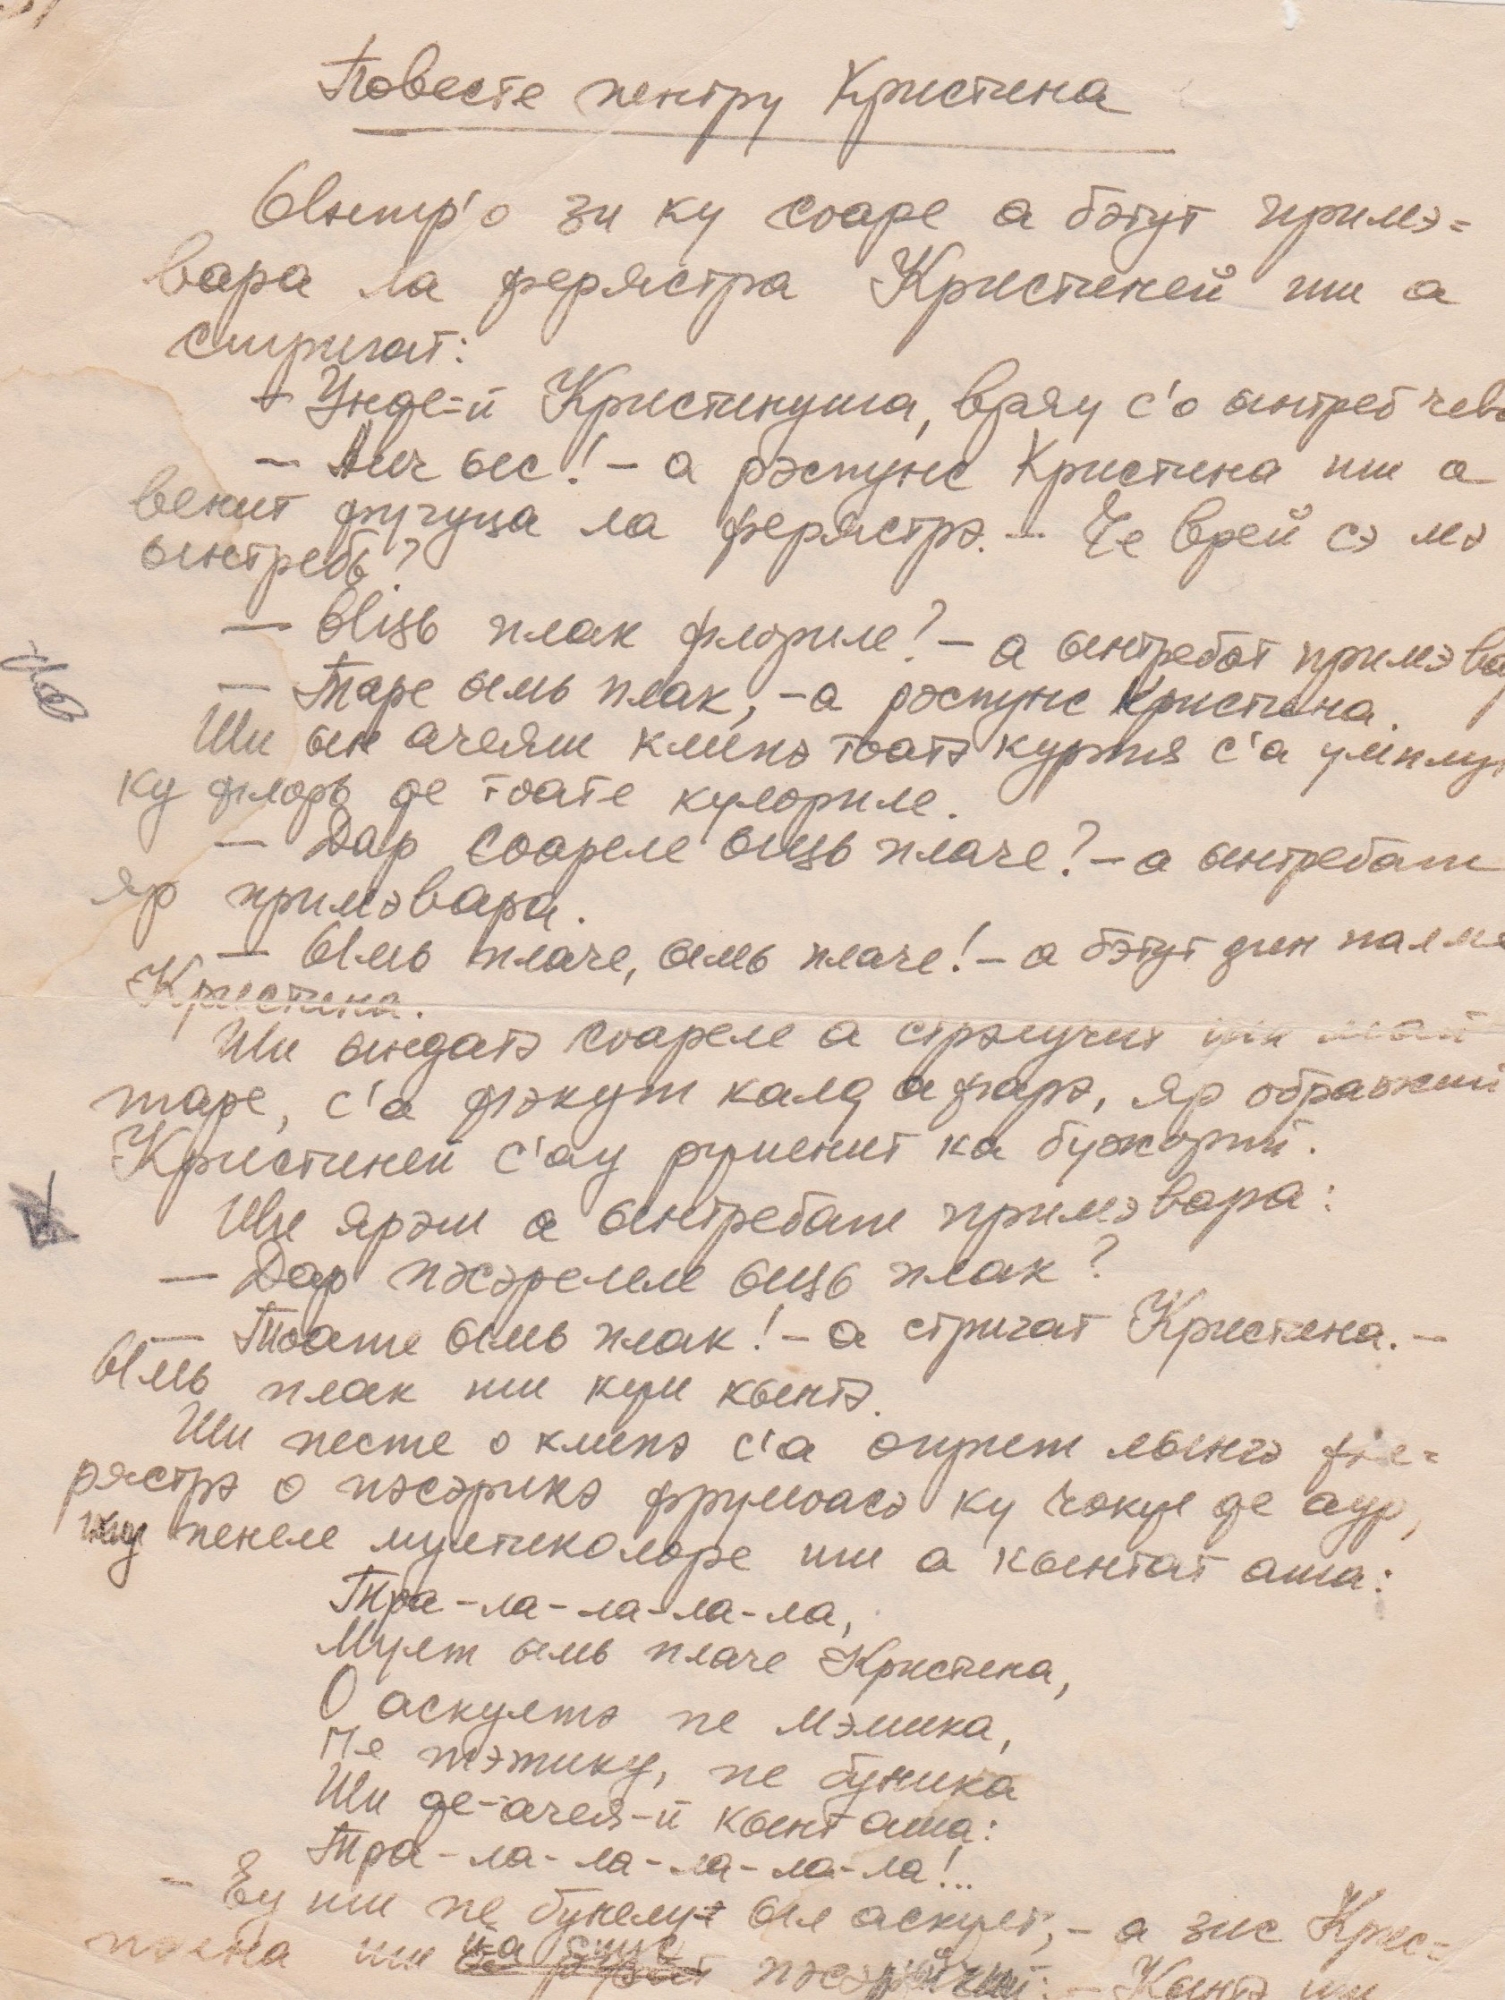 Повесте пентру Кристина
Ынтр'о зи ку соаре а бэтут примэ=
вара ла ферястра Кристиней ши а
стригат:
— Унде-й Кристинуша, вряу с'о ынтреб чева
— Аич ыс! — а рэспунс Кристина ши а
венит фугуца ла ферястрэ. — Че врей сэ мэ
ынтребь?
— Ыць плак флориле? — а ынтребат примэвара
— Таре ымь плак, — а рэспунс Кристина.
Ши ын ачеяш клипэ тоатэ куртя с'а умплут
ку флорь де тоате кулориле.
— Дар соареле ыць плаче? — а ынтребат
яр примэвара.
— Ымь плаче, ымь плаче! — а бэтут дин палме
Кристина.
Ши ындатэ соареле а стрэлучит ши май
таре, с'а фэкут калд афарэ, яр ображий
Кристиней с'ау руменит ка бужорий.
Ши ярэш а ынтребат примэвара:
— Дар пэсэреле ыць плак?
— Тоате ымь плак! — а стригат Кристина. —
Ымь плак ши кум кынтэ.
Ши песте о клипэ с'а оприт лынгэ фе=
рястрэ о пэсэрикэ фрумоасэ ку чокул де аур,
ку пенеле мултиколоре ши а кынтат аша:
Тра-ла-ла-ла-ла,
Мулт ымь плаче Кристина,
О аскултэ пе мэмика,
Пе тэтику, пе буника
Ши де-ачея-й кынт аша:
Тра-ла-ла-ла-ла-ла!..
— Еу ши пе бунелу ыл аскулт, — а зис Крис=
тина ши а спус пэсэричий: — Кынтэ ши